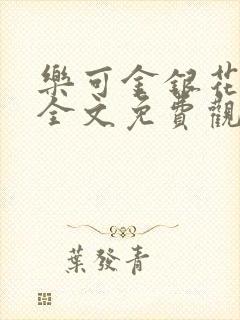 樂可金銀花
全文免費觀
葉發青